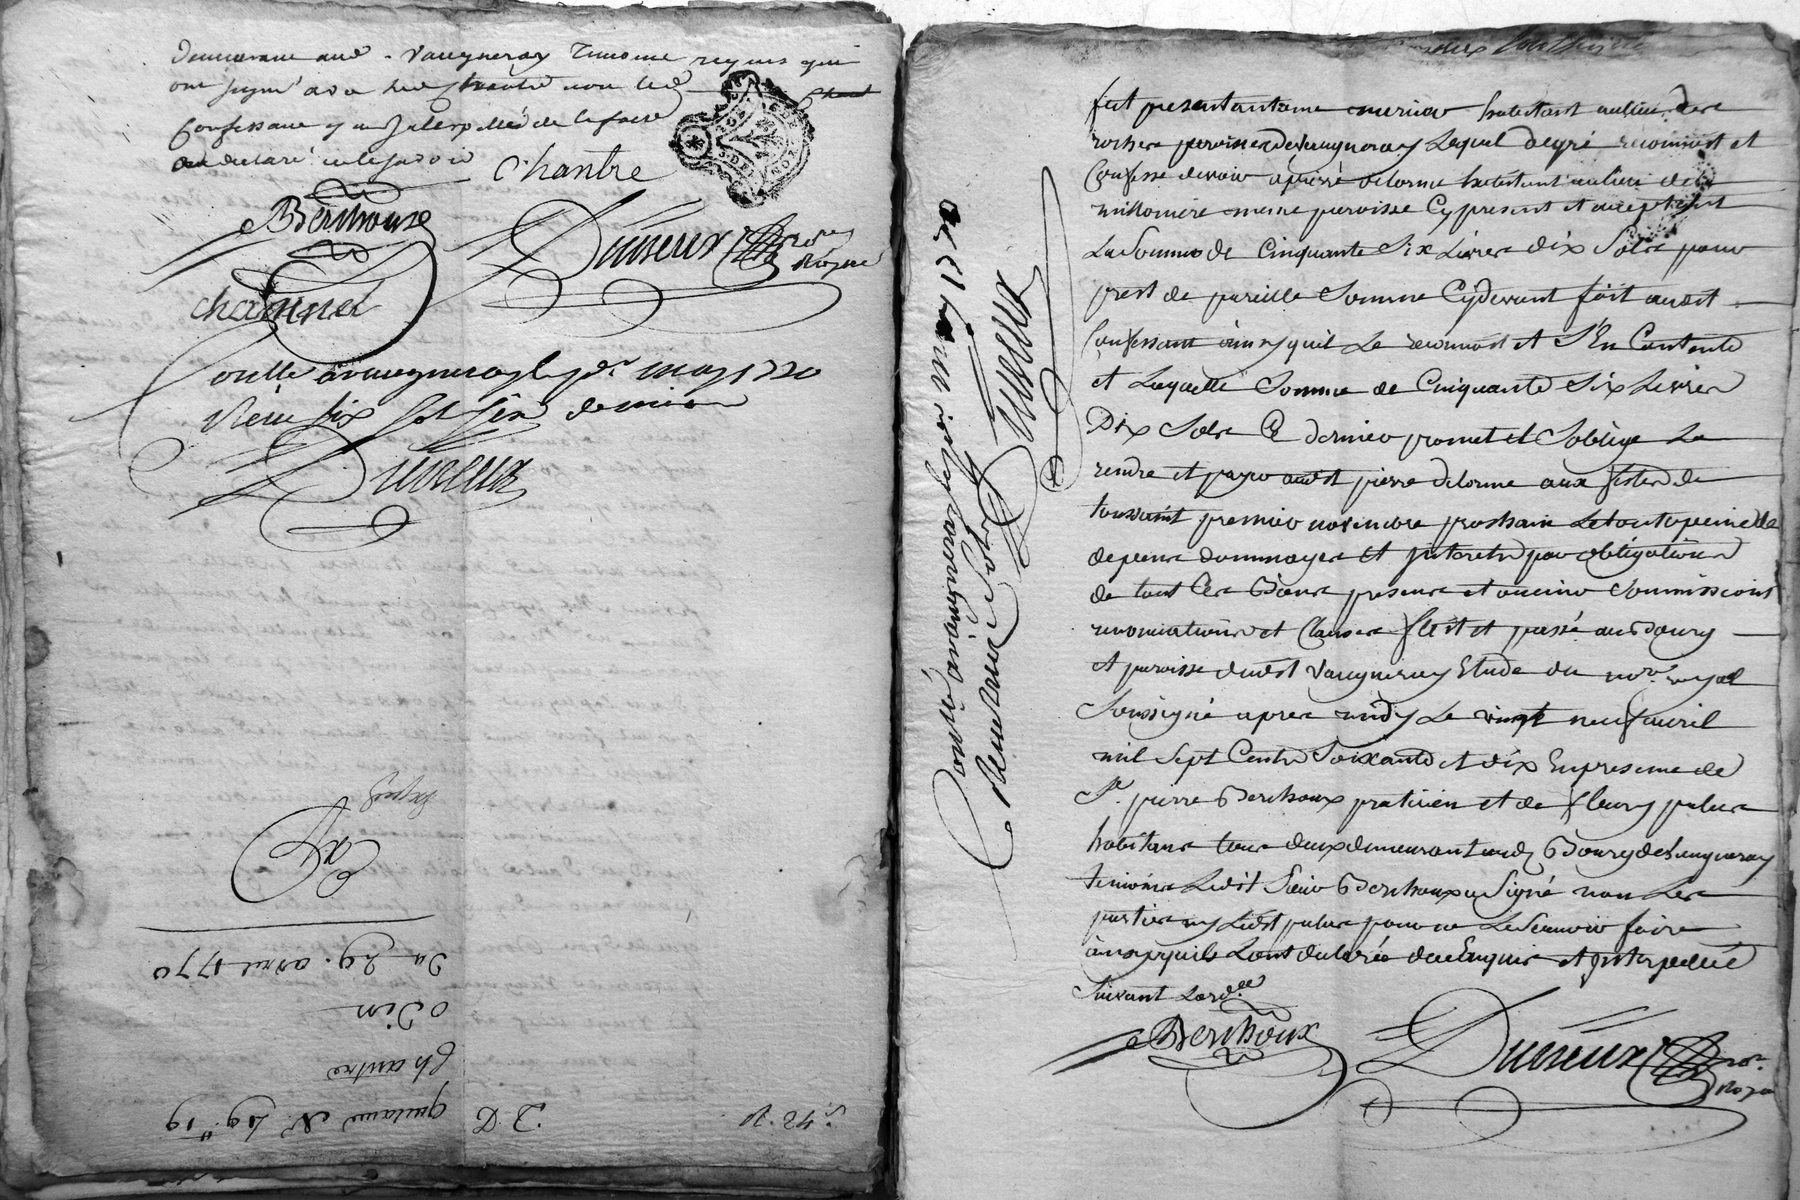 demeurant aud. Vaugneray temoins requis qui
ont signé avec led. chantre non led.
Confessant
de ce faire
Chantre
Berthoux
Dutreux no.re Royal
chatinnet
Controllé à vaugneray le p.er may 1770
Reçu six sols six deniers
Dutreux
Du 29. avril 1770
odin
Chantre
quittance
fut present antoine meriaw habitant au lieu des
roches paroisse de Vaugneray Lequel de gré reconnoit et
Confesse devoir à pierre delorme habitant au lieu de la
millionniere meme paroisse Cy present et acceptant
La Somme de Cinquante Six Livres dix Sols pour
prest de pareille Somme Cydevant fait audit
Confessant ainsy quil Le reconnoit et S'En Contente
et Laquelle Somme de Cinquante Six Livres
Dix Sols Ce dernier promet et Soblige La
rendre et payer audit pierre delorme aux festes de
toussaint premier novembre prochain Le tout a peine de
depens dommages et interets par obligation
de tout Ces Biens presents et avenir Soumissions
renonciations et Clauses fait et passé au Bourg
et paroisse dudit Vaugneray Etude du no.re royal
Soussigné apres midy Le vingt neuf avril
mil Sept Cents Soixante et dix En presence de
S.r pierre Berthoux praticien et de fleury palue
habitans tous deux demeurant aud. Bourg de Vaugneray
temoins Ledit Sieur Berthoux a Signé non Les
parties ny Ledit palue pour ne Le Scavoir faire
ainsy quils L'ont declaré de ce Enquis et interpellé
Suivant L'ord.ce
Berthoux
Dutreux no.re Royal
Controllé à vaugneray le
Reçu
Dutreux